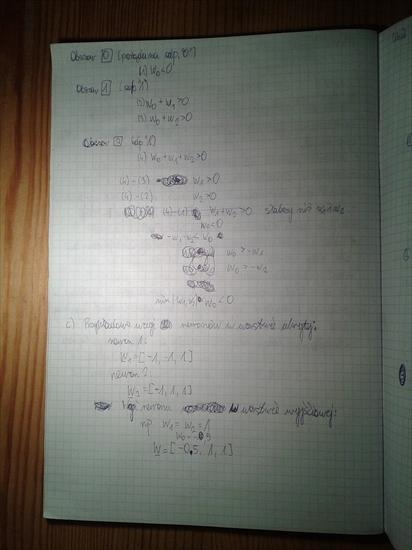 Obszar 0 (pożądana odp. "0")
(1) w₀<0
Obszar 1 (odp "1")
(2) w₀ + w₁ >0
(3) w₀ + w₂>0
Obszar 2 (odp 1)
(4) w₀ + w₁ + w₂>0
(4) - (3) w₁>0
(4) - (2) w₂>0
(4) - (1) w₁+w₂>0 słabszy niż
w₀<0
-w₁-w₂<w₀
w₀ > -w₁
w₀ > -w₂
w₀ < 0
c) Przykładowe wagi neuronów w warstwie ukrytej:
neuron 1:
w₁ = [-1, -1, 1]
neuron 2:
w₂ = [-1, 1, 1]
neuronu w warstwie wyjściowej:
np w₁ = w₂ = 1
w₀ = -0,5
w = [-0,5, 1, 1]